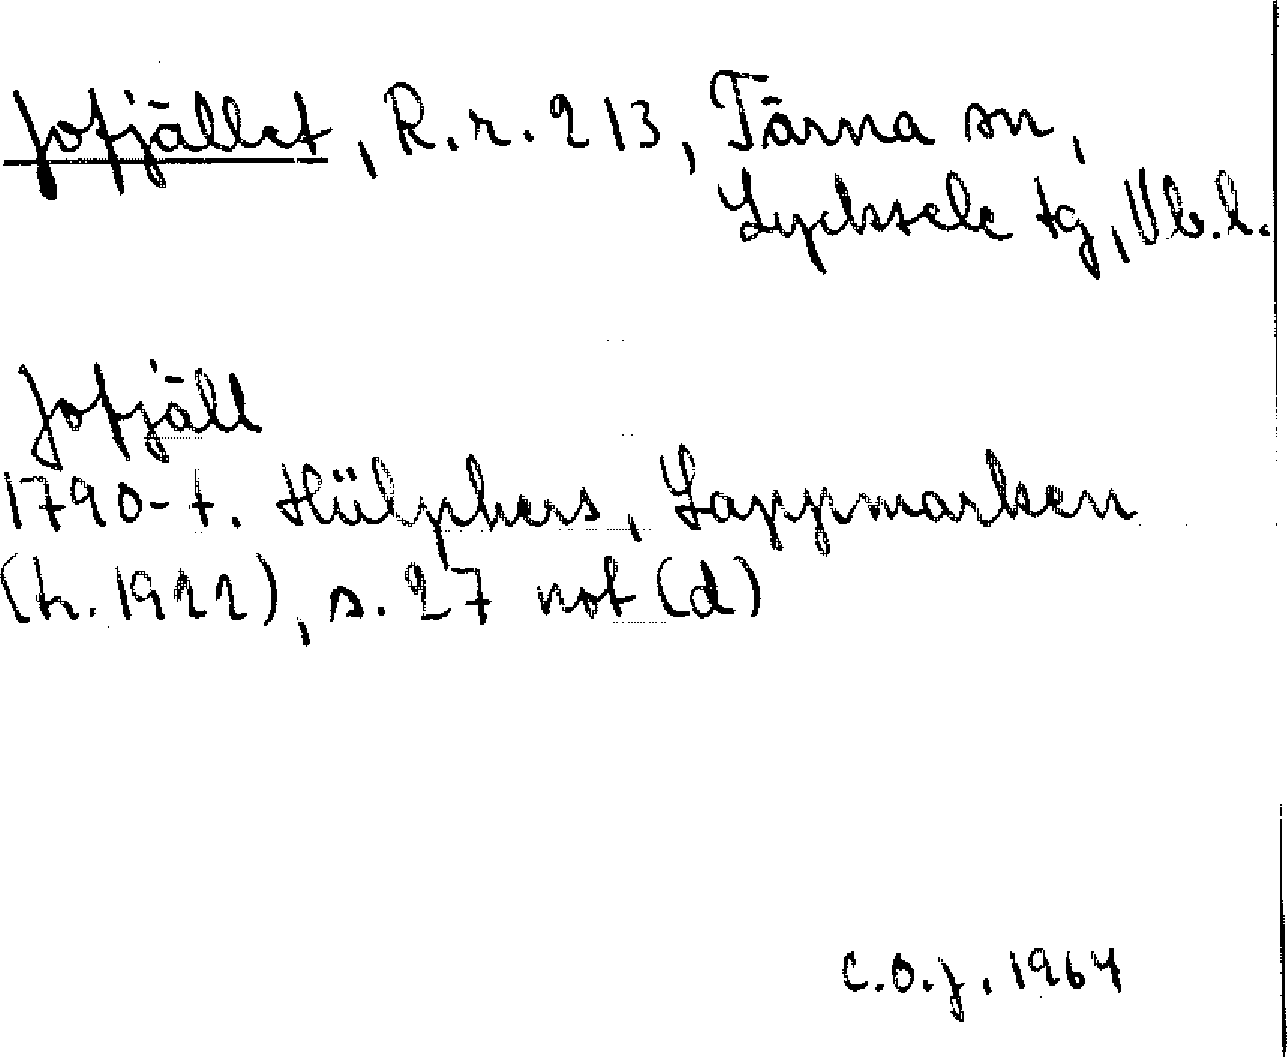 Jofjället, R.r. 213, Tärna sn,
Lycksele tg, Vb.l.
Jofjäll
1790-t. Hülphers, Lappmarken
(h. 1922), s. 27 not (d)
C.O.J. 1964